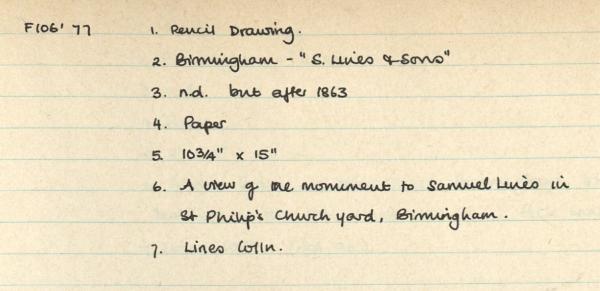 F106' 77 1. Pencil Drawing.
2. Birmingham - "S. Lines & Sons"
3. n.d. but after 1863
4. Paper
5. 10 3/4" x 15"
6. A view of the monument to Samuel Lines in
St Philip's Church yard, Birmingham.
7. Lines Colln.